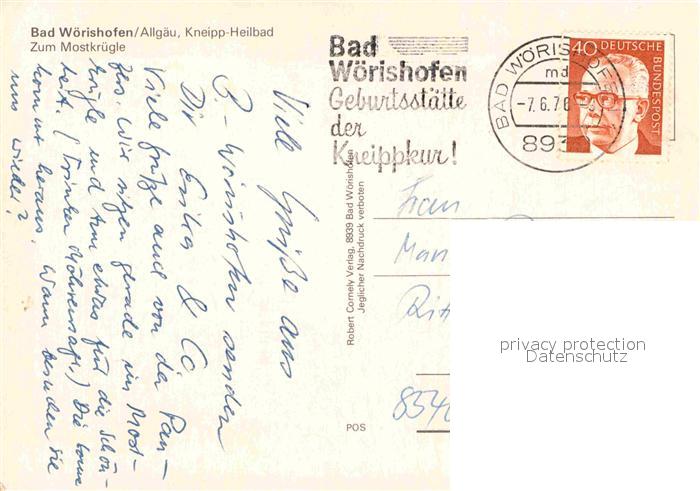 Bad Wörishofen/Allgäu, Kneipp-Heilbad
Zum Mostkrügle
Bad
Wörishofen
Geburtsstätte
der
Kneippkur!
BAD WÖRISHOFEN
-7.6.7
893
40 DEUTSCHE
BUNDESPOST
Viele Grüße aus
B.-Wörishofen senden
Dir Erika & Co
Viele Grüße auch von der
Wir sitzen gerade im Most-
krügle und tun etwas für die Schön-
heit. (Trinken Möhrensaft.) Die Sonne
kommt heraus. Wann besuchen Sie
uns wieder?
Robert Cornely Verlag, 8939 Bad Wörishofen
Jeglicher Nachdruck verboten
POS
Frau
Man
Rit
8540
privacy protection
Datenschutz